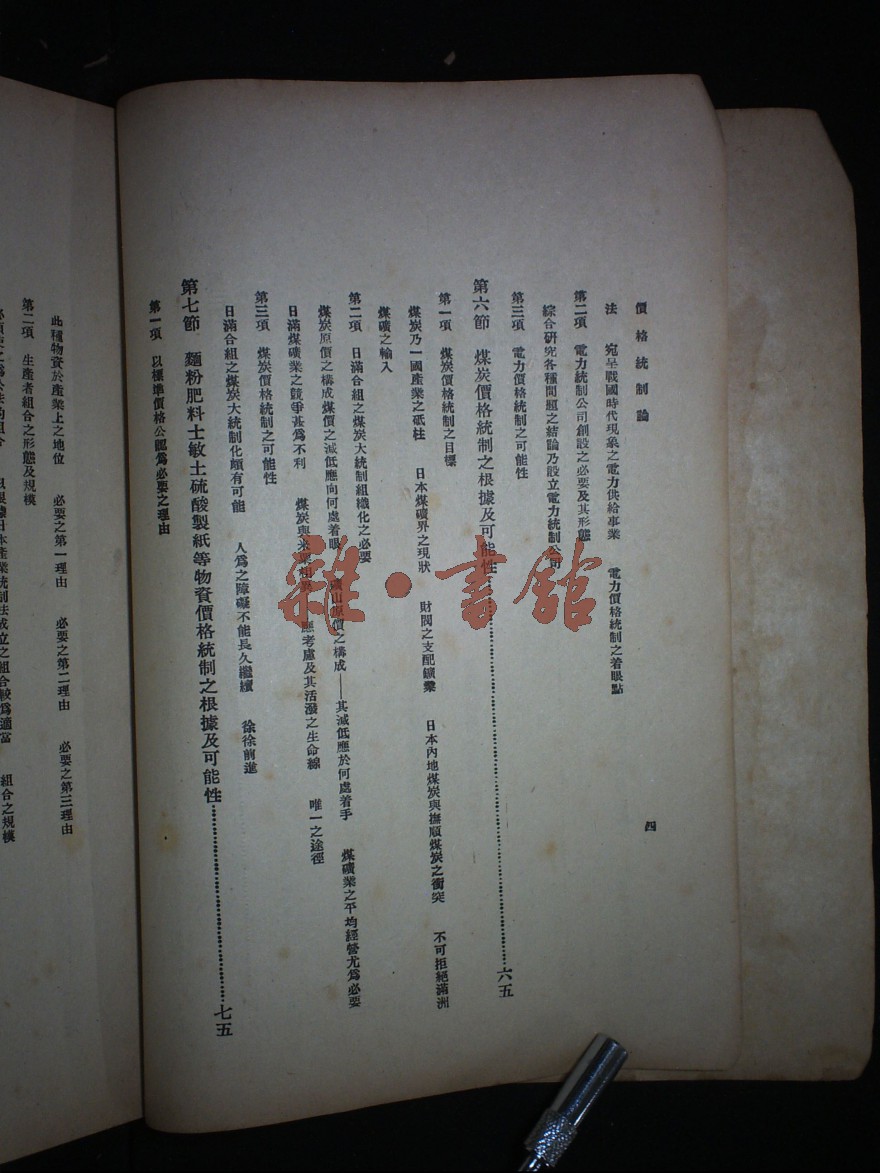 價格統制論
四
法　宛呈戰國時代現象之電力供給事業　電力價格統制之着眼點
第二項　電力統制公司創設之必要及其形態
綜合研究各種問題之結論乃設立電力統制公司
第三項　電力價格統制之可能性
第六節　煤炭價格統制之根據及可能性……六五
第一項　煤炭價格統制之目標
煤炭乃一國產業之砥柱　日本煤礦界之現狀　財閥之支配鑛業　日本內地煤炭與撫順煤炭之衝突　不可拒絕滿洲
煤礦之輸入
第二項　日滿合組之煤炭大統制組織化之必要
煤炭原價之構成煤價之減低應向何處着眼　山原價之構成——其減低應於何處着手　煤礦業之平均經營尤爲必要
日滿煤礦業之競爭甚爲不利　煤炭與米　應考慮及其活潑之生命線　唯一之途徑
第三項　煤炭價格統制之可能性
日滿合組之煤炭大統制化頗有可能　人爲之障礙不能長久繼續　徐徐前進
第七節　麵粉肥料士敏土硫酸製紙等物資價格統制之根據及可能性……七五
第一項　以標準價格公認爲必要之理由
此種物資於產業上之地位　必要之第一理由　必要之第二理由　必要之第三理由
第二項　生產者組合之形態及規模
日本產業統制法成立之組合較爲適當　組合之規模
雜·書館